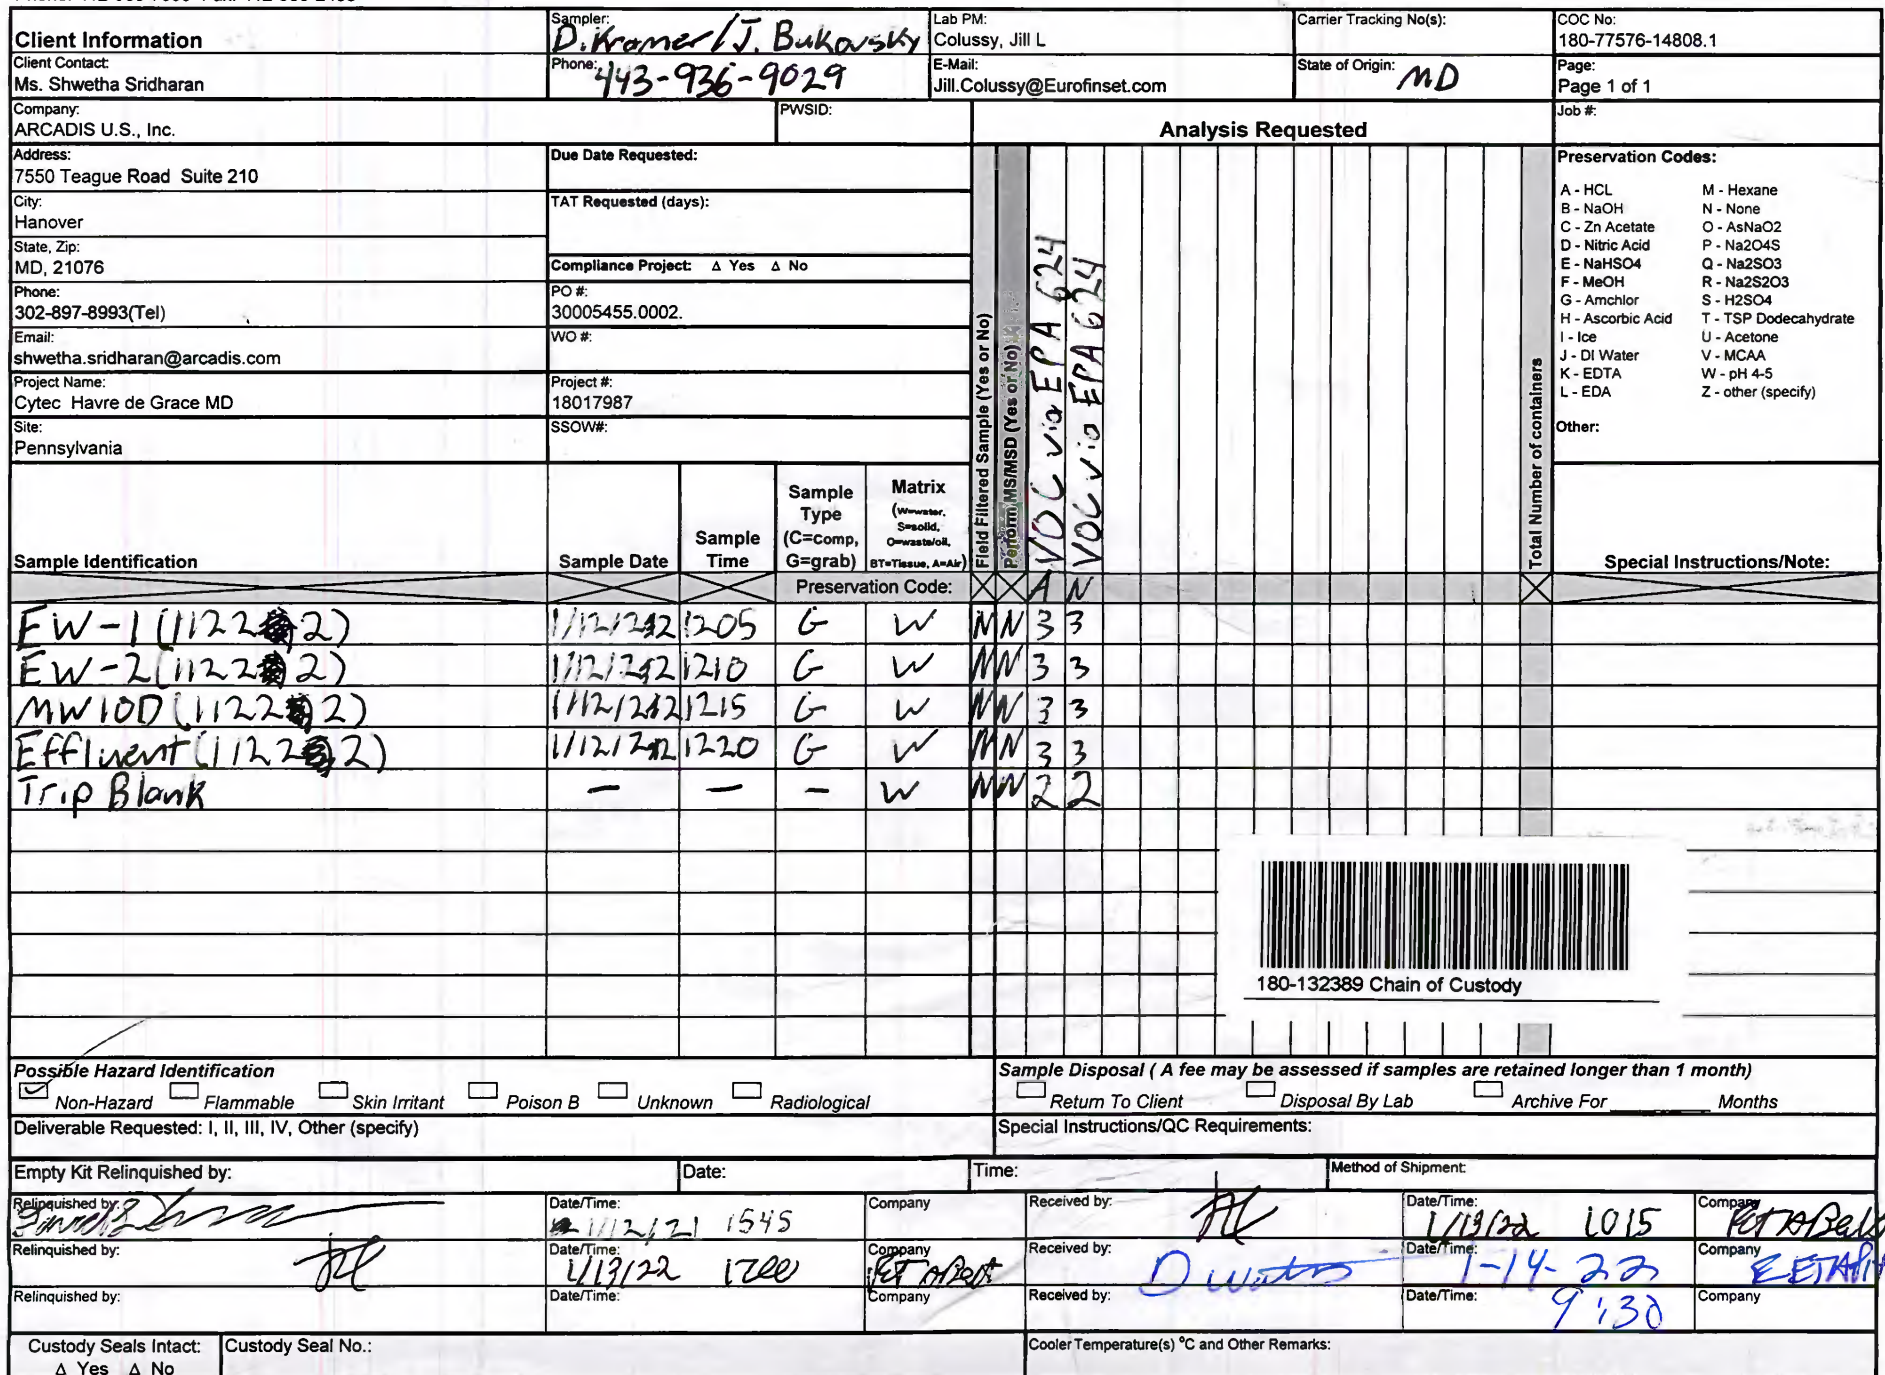 Client Information
Sampler: D. Kramer / J. Bukovsky
Lab PM: Colussy, Jill L
Carrier Tracking No(s):
COC No: 180-77576-14808.1
Client Contact: Ms. Shwetha Sridharan
Phone: 443-936-9029
E-Mail: Jill.Colussy@Eurofinset.com
State of Origin: MD
Page: Page 1 of 1
Company: ARCADIS U.S., Inc.
PWSID:
Analysis Requested
Job #:
Address: 7550 Teague Road Suite 210
Due Date Requested:
City: Hanover
TAT Requested (days):
State, Zip: MD, 21076
Compliance Project: Δ Yes Δ No
Phone: 302-897-8993(Tel)
PO #: 30005455.0002.
Email: shwetha.sridharan@arcadis.com
WO #:
Project Name: Cytec Havre de Grace MD
Project #: 18017987
Site: Pennsylvania
SSOW#:
Field Filtered Sample (Yes or No)
Perform MS/MSD (Yes or No)
VOC via EPA 624
VOC via EPA 624
Total Number of containers
Preservation Codes:
A - HCL M - Hexane
B - NaOH N - None
C - Zn Acetate O - AsNaO2
D - Nitric Acid P - Na2O4S
E - NaHSO4 Q - Na2SO3
F - MeOH R - Na2S2O3
G - Amchlor S - H2SO4
H - Ascorbic Acid T - TSP Dodecahydrate
I - Ice U - Acetone
J - DI Water V - MCAA
K - EDTA W - pH 4-5
L - EDA Z - other (specify)
Other:
Sample Identification
Sample Date
Sample Time
Sample Type (C=comp, G=grab)
Matrix (W=water, S=solid, O=waste/oil, BT=Tissue, A=Air)
Special Instructions/Note:
Preservation Code: A N
EW-1 (1122 2) 1/12/22 1205 G W N N 3 3
EW-2 (1122 2) 1/12/22 1210 G W N N 3 3
MW10D (1122 2) 1/12/22 1215 G W N N 3 3
Effluent (1122 2) 1/12/22 1220 G W N N 3 3
Trip Blank — — — W N N 2 2
180-132389 Chain of Custody
Possible Hazard Identification
Non-Hazard Flammable Skin Irritant Poison B Unknown Radiological
Sample Disposal ( A fee may be assessed if samples are retained longer than 1 month)
Return To Client Disposal By Lab Archive For Months
Deliverable Requested: I, II, III, IV, Other (specify)
Special Instructions/QC Requirements:
Empty Kit Relinquished by: Date: Time: Method of Shipment:
Relinquished by: Date/Time: 1/12/21 1545 Company Received by: Date/Time: 1/13/22 1015 Company
Relinquished by: Date/Time: 1/13/22 1700 Company Received by: D Watts Date/Time: 1-14-22 Company
Relinquished by: Date/Time: Company Received by: Date/Time: 9:30 Company
Custody Seals Intact: Δ Yes Δ No
Custody Seal No.:
Cooler Temperature(s) °C and Other Remarks: